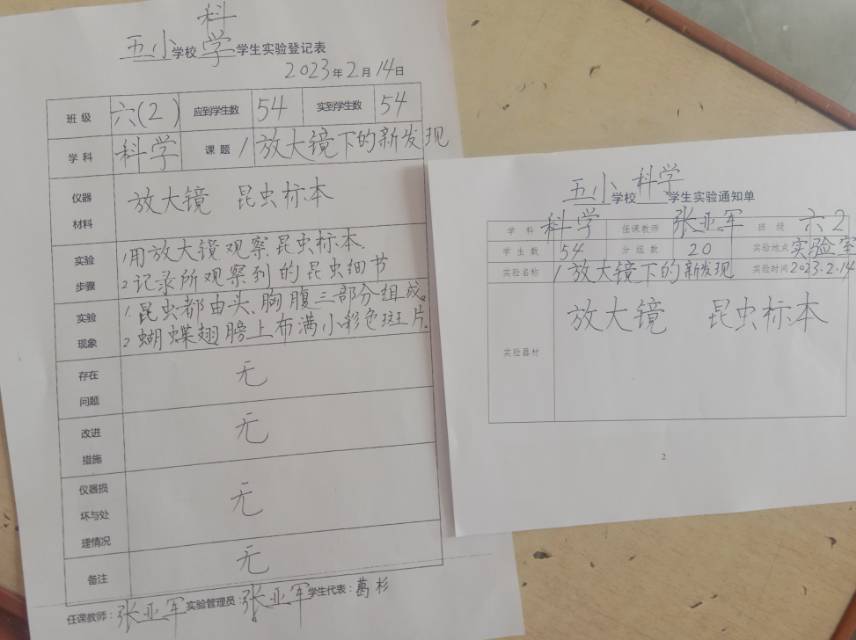 五小学校科学学生实验登记表
2023年2月14日
班级 六(2) 应到学生数 54 实到学生数 54
学科 科学 课题 1放大镜下的新发现
仪器材料 放大镜 昆虫标本
实验步骤 1用放大镜观察昆虫标本.
2记录所观察到的昆虫细节
实验现象 1.昆虫都由头.胸腹三部分组成。
2蝴蝶翅膀上布满小彩色斑片.
存在问题 无
改进措施 无
仪器损坏与处理情况 无
备注 无
任课教师:张亚军 实验管理员:张亚军 学生代表:葛杉
五小学校科学学生实验通知单
学科 科学 任课教师 张亚军 班级 六2
学生数 54 分组数 20 实验地点 实验室
实验名称 1放大镜下的新发现 实验时间 2023.2.14
实验器材 放大镜 昆虫标本
2